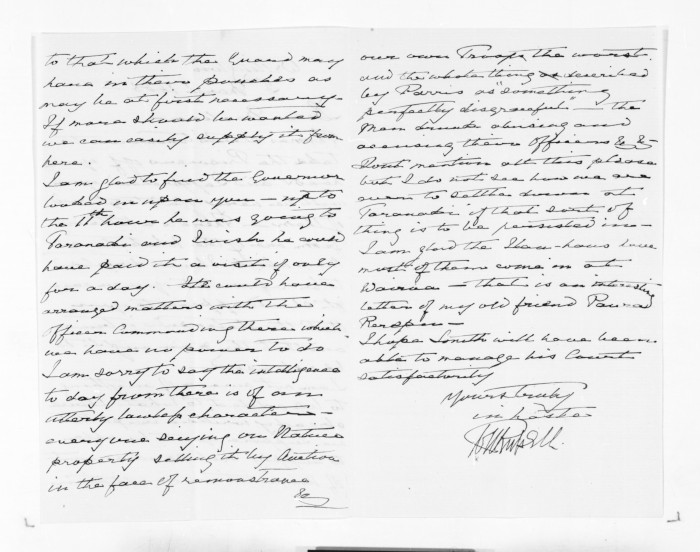 to that which the Guard may
have in their pouches as
may be at first necessary -
If more should be wanted
we can easily supply it from
here.
I am glad to find the Governor
looked in upon you - up to
the 11th hour he was going to
Taranaki and I wish he could
have paid it a visit if only
for a day. He could have
arranged matters with the
Officer Commanding there which
we have no power to do
I am sorry to say the intelligence
to day from there is of an
utterly lawless character -
everyone seizing on Native
property selling it by Auction
in the face of remonstrance
&c
our own Troops the worst.
and the whole thing as described
by Parris as "something
perfectly disgraceful" - the
Men drunk abusing and
accusing their Officers &c &c
Dont mention all this please
but I do not see how we are
ever to settle down at
Taranaki if that sort of
thing is to be persisted in -
I am glad the Hau-haus have
most of them come in at
Wairoa - that is an interesting
letter of my old friend Paora
I hope Smith will have been
able to manage his Court
satisfactorily
Yours truly
in haste